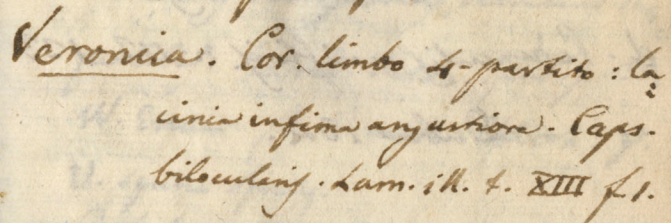 Veronica. Cor. limbo 4-partito: la=
cinia infima angustiore. Caps.
bilocularis. Lam. ill. t. XIII f 1.